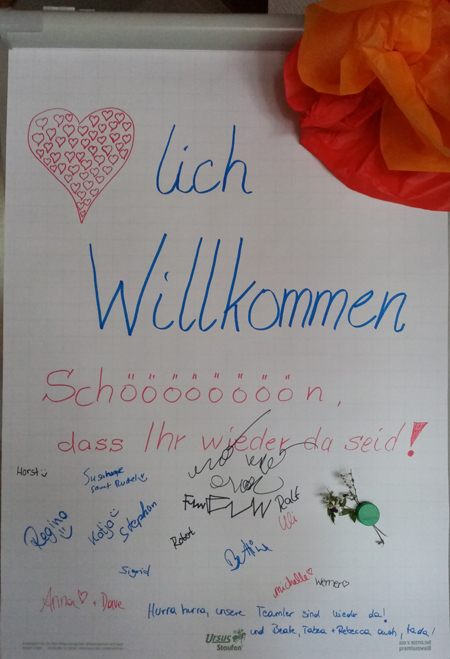 lich
Willkommen
Schööööööön,
dass Ihr wieder da seid!
Horst
Susanne
samt Rudel
Regina
Katja
Stephan
Robert
Ralf
Uli
Bettina
Sigrid
Michelle
Werner
Anna + Dave
Hurra hurra, unsere Teamler sind wieder da!
und Beate, Tabea + Rebecca auch, tada!
Ursus
Staufen
premiumweiß